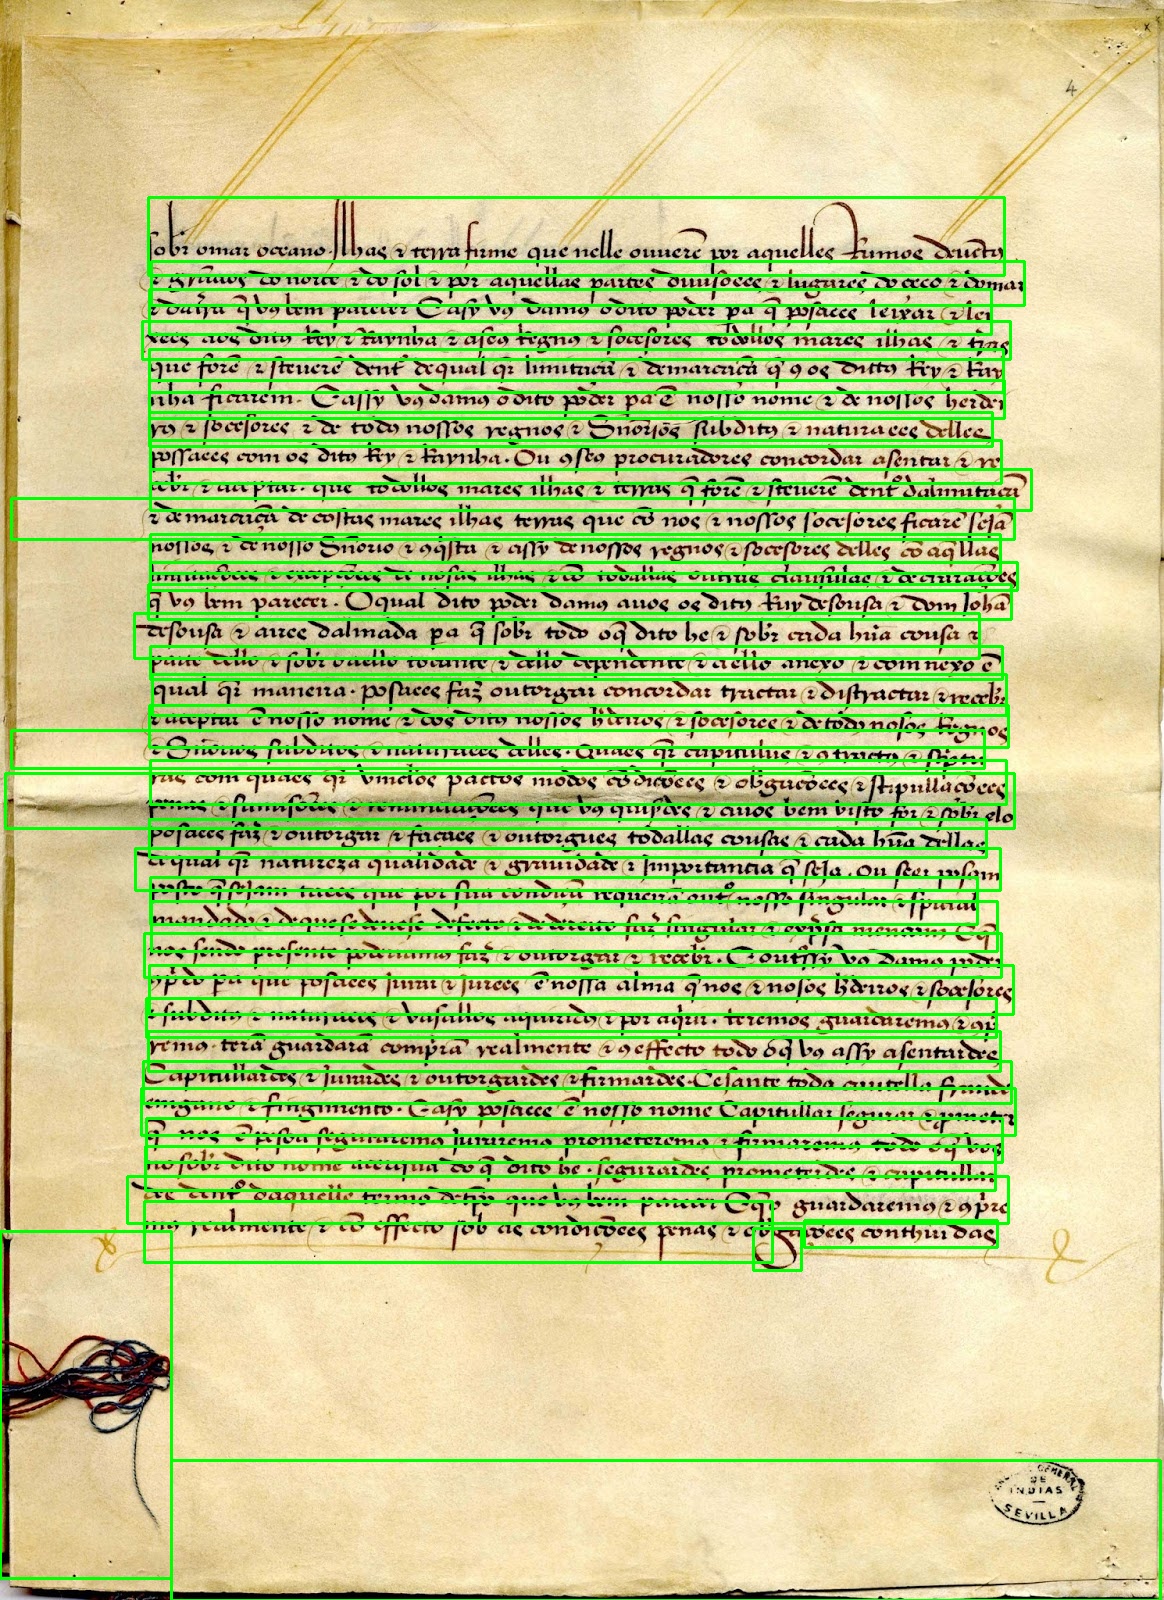 4
sobr omar oceano. Ilhas & terra firme que nelle ouuerẽ por aquelles Rumos deuẽtos
& graaos do norte & do sol & por aquellas partes diuisoees & lugares do ceeo & do mar
& da terra q̃ vos bem parecer E asy vos damos o dito poder pa q̃ posaaes leixar & lei
xees aos ditos Rey & Raynha & a seus Regnos & socesores todollos mares ilhas & tr̃as
que forẽ & steuerẽ dentro de qual q̃r limitaçã & demarcaçã q̃ 9 os dittos Rey & Ray
nha ficarem. E assy vos damos o dito poder pa ẽ nosso nome & de nossos herdei
ros & socesores & de todos nossos regnos & Sñorios subditos & naturaees delles
possaees com os ditos Rey & Raynha. Ou 9 seus procuradores concordar asentar & re
cebr & aceptar. que todollos mares ilhas & terras q̃ forẽ & steuerẽ dentro da limitaçã
& demarcaçã de costas mares ilhas terras que cõ nos & nossos socesores ficarẽ sejã
nossos & de nosso Sñorio & 9q̃sta & assy de nossos regnos & socesores delles cõ aq̃llas
limitações & exepções de nosas ilhas & cõ todallas outras clausulas & decrarações
q̃ vos bem parecer. O qual dito poder damos a uos os ditos Ruy de sousa & dom Iohã
de sousa & aires dalmada pa q̃ sobr todo o q̃ dito he & sobr cada hũa cousa &
parte dello & sobr o a ello tocante & dello dependente & a ello anexo & connexo ẽ
qual q̃r maneira. posaees faz̃ outorgar concordar tractar & distractar & recebr
& aceptar ẽ nosso nome & dos ditos nossos hdeiros & socesores & de todos nosos Regnos
& Sñorios subditos & naturaees delles. Quaes q̃r capitulos & 9tractos & scriptu
ras com quaes q̃r vinculos pactos modos cõdições & obrigações & stipullações
penas & sumisões & renunciações que vos quiserdes & a uos bem visto for & sobr elo
posaees faz̃ & outorgar & façaes & outorgues todallas cousas & cada hũa dellas
de qual q̃r natureza qualidade & grauidade & importancia q̃ seja. Ou seer posam
posto q̃ sejam taees que por sua condiçã requeirã outro nosso singular & special
mandado & de que se deuese de fecto & de dereito faz̃ singular & exp̃sa mençom E q̃
nos seendo presente poderiamos faz̃ & outorgar & recebr. E outssy vos damos poder
9prido pa que posaees jurar & jurees ẽ nossa alma q̃ nos & nosos hdeiros & socesores
& subditos & naturaees & vasallos aquiridos & por aq̃rir. teremos guardaremos & 9pri
remos. terã guardarã comprã realmente & 9 effecto todo o q̃ vos assy asentardes
Capitullardes & jurardes & outorgardes & firmardes. Cesante toda cautella fraude
emgano & fingimento. E asy posaees ẽ nosso nome Capitullar segurar & prometer
q̃ nos ẽ pesoa seguraremos juraremos prometeremos & firmaremos todo o q̃ vos
no sobr dito nome acerqua do q̃ dito he. segurardes prometerdes & capitullar
des dentro daquelle termo de tp̃o que vos bem parecer E q̃ o guardaremos & 9pre
mos realmente & cõ effecto sob as condições penas & obrigações conthiudas
ARCHIVO GENERAL
DE
INDIAS
SEVILLA